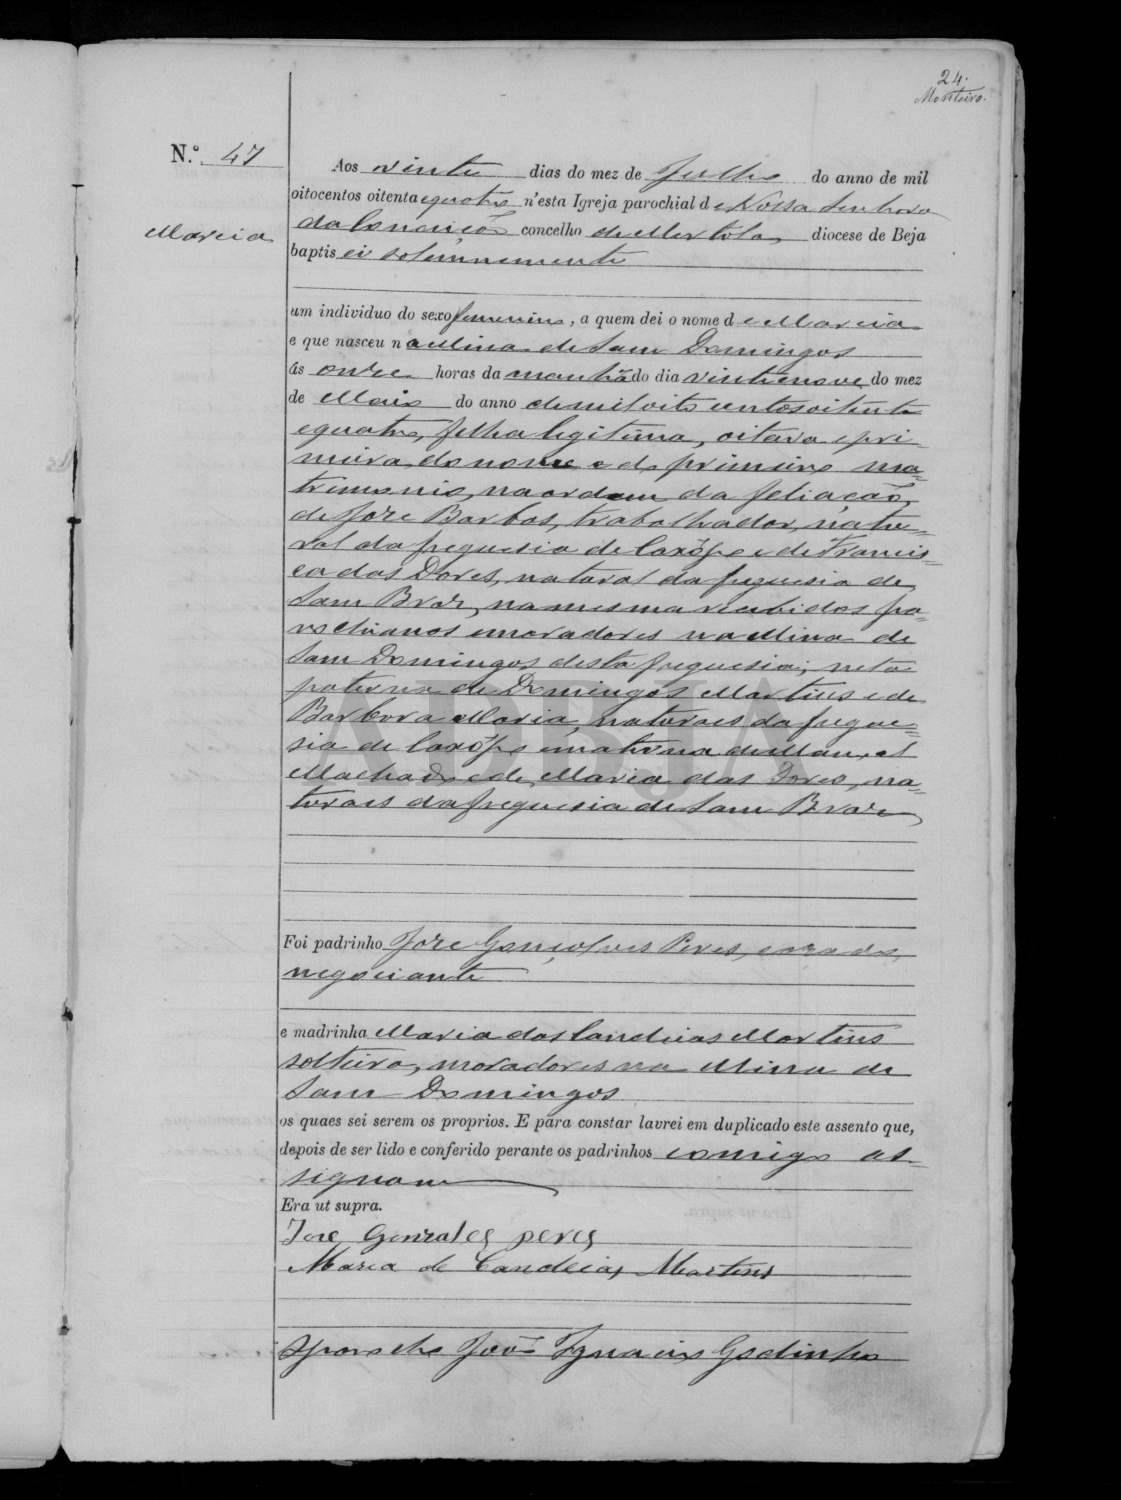 24.
Monteiro.
N.º 47
Aos vinte dias do mez de Julho do anno de mil
oitocentos oitenta equatro n'esta Igreja parochial de Nossa Senhora
da Conceição concelho de Mertola, diocese de Beja
Maria
baptisei solemnemente
um individuo do sexo femenino, a quem dei o nome de Maria
e que nasceu na Mina de Sam Domingos
ás onze horas da manhã do dia vinte enove do mez
de Maio do anno de mil oito centos oitenta
equatro, filha legitima, oitava epri-
meira do nome e do primeiro ma-
trimonio, na ordem da feliação,
de Jose Barbos, trabalhador, natu-
ral da freguesia de Caxôpo e de Francis-
ca das Dores, natural da freguesia de
Sam Braz, na mesma recebidos pa-
rochianos emoradores na Mina de
Sam Domingos desta freguesia; neta
paterna de Domingos Martins e de
Barbora Maria, naturaes da fregue-
sia de Caxôpo ematerna de Manoel
Machado ede Maria das Dores, na-
turaes da freguesia de Sam Braz
ADBJA
Foi padrinho Jose Gonçolves Peres, cazado,
negociante
e madrinha Maria das Candeias Martins
solteira, moradores na Mina de
Sam Domingos
os quaes sei serem os proprios. E para constar lavrei em duplicado este assento que,
depois de ser lido e conferido perante os padrinhos comigo as-
signam
Era ut supra.
Jose Gonzales peres
Maria de Candeias Martins
João Ignacio Godinho